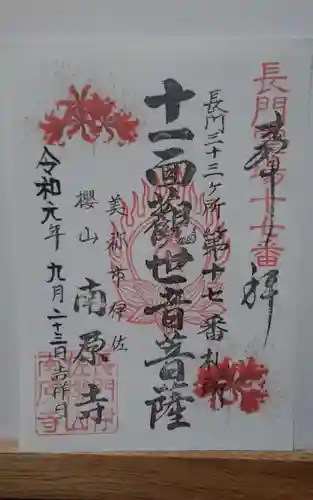 長門第十七番
奉拝
長門三十三ヶ所第十七番札所
十一面観世音菩薩
美祢市伊佐
櫻山 南原寺
令和元年九月二十三日吉祥日